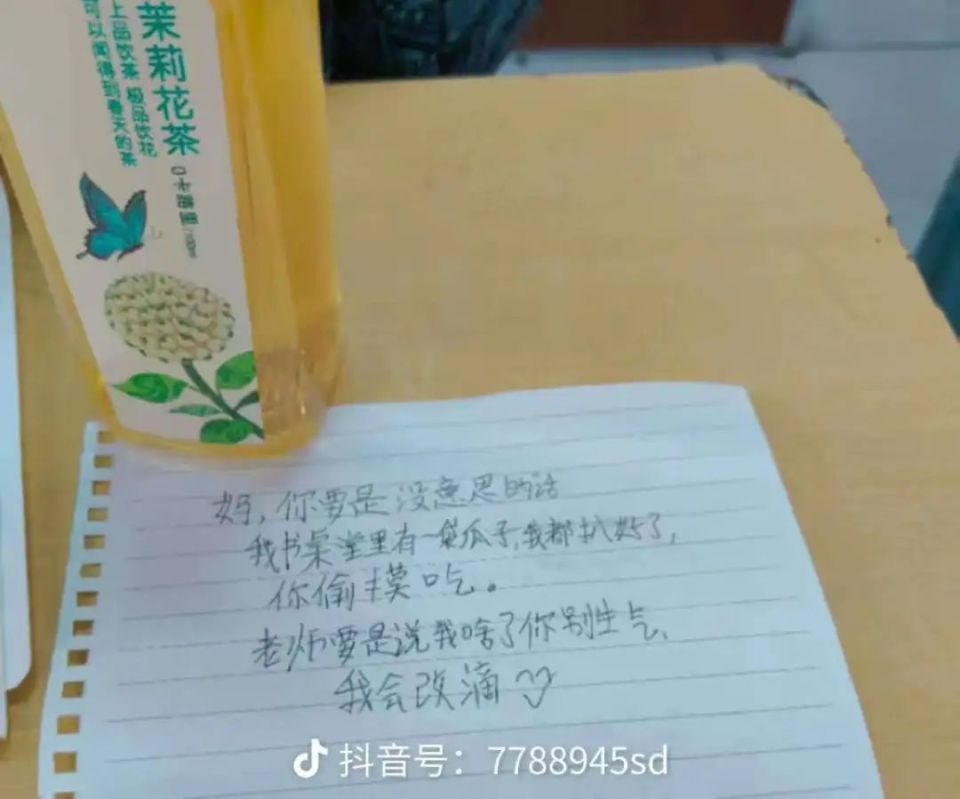 茉莉花茶
上品饮茶 极品饮花
可以闻得到春天的茶
0卡路里/100ml
妈，你要是没意思的话
我书桌堂里有一袋瓜子，我都扒好了，
你偷摸吃。
老师要是说我啥了你别生气，
我会改滴
抖音号：7788945sd